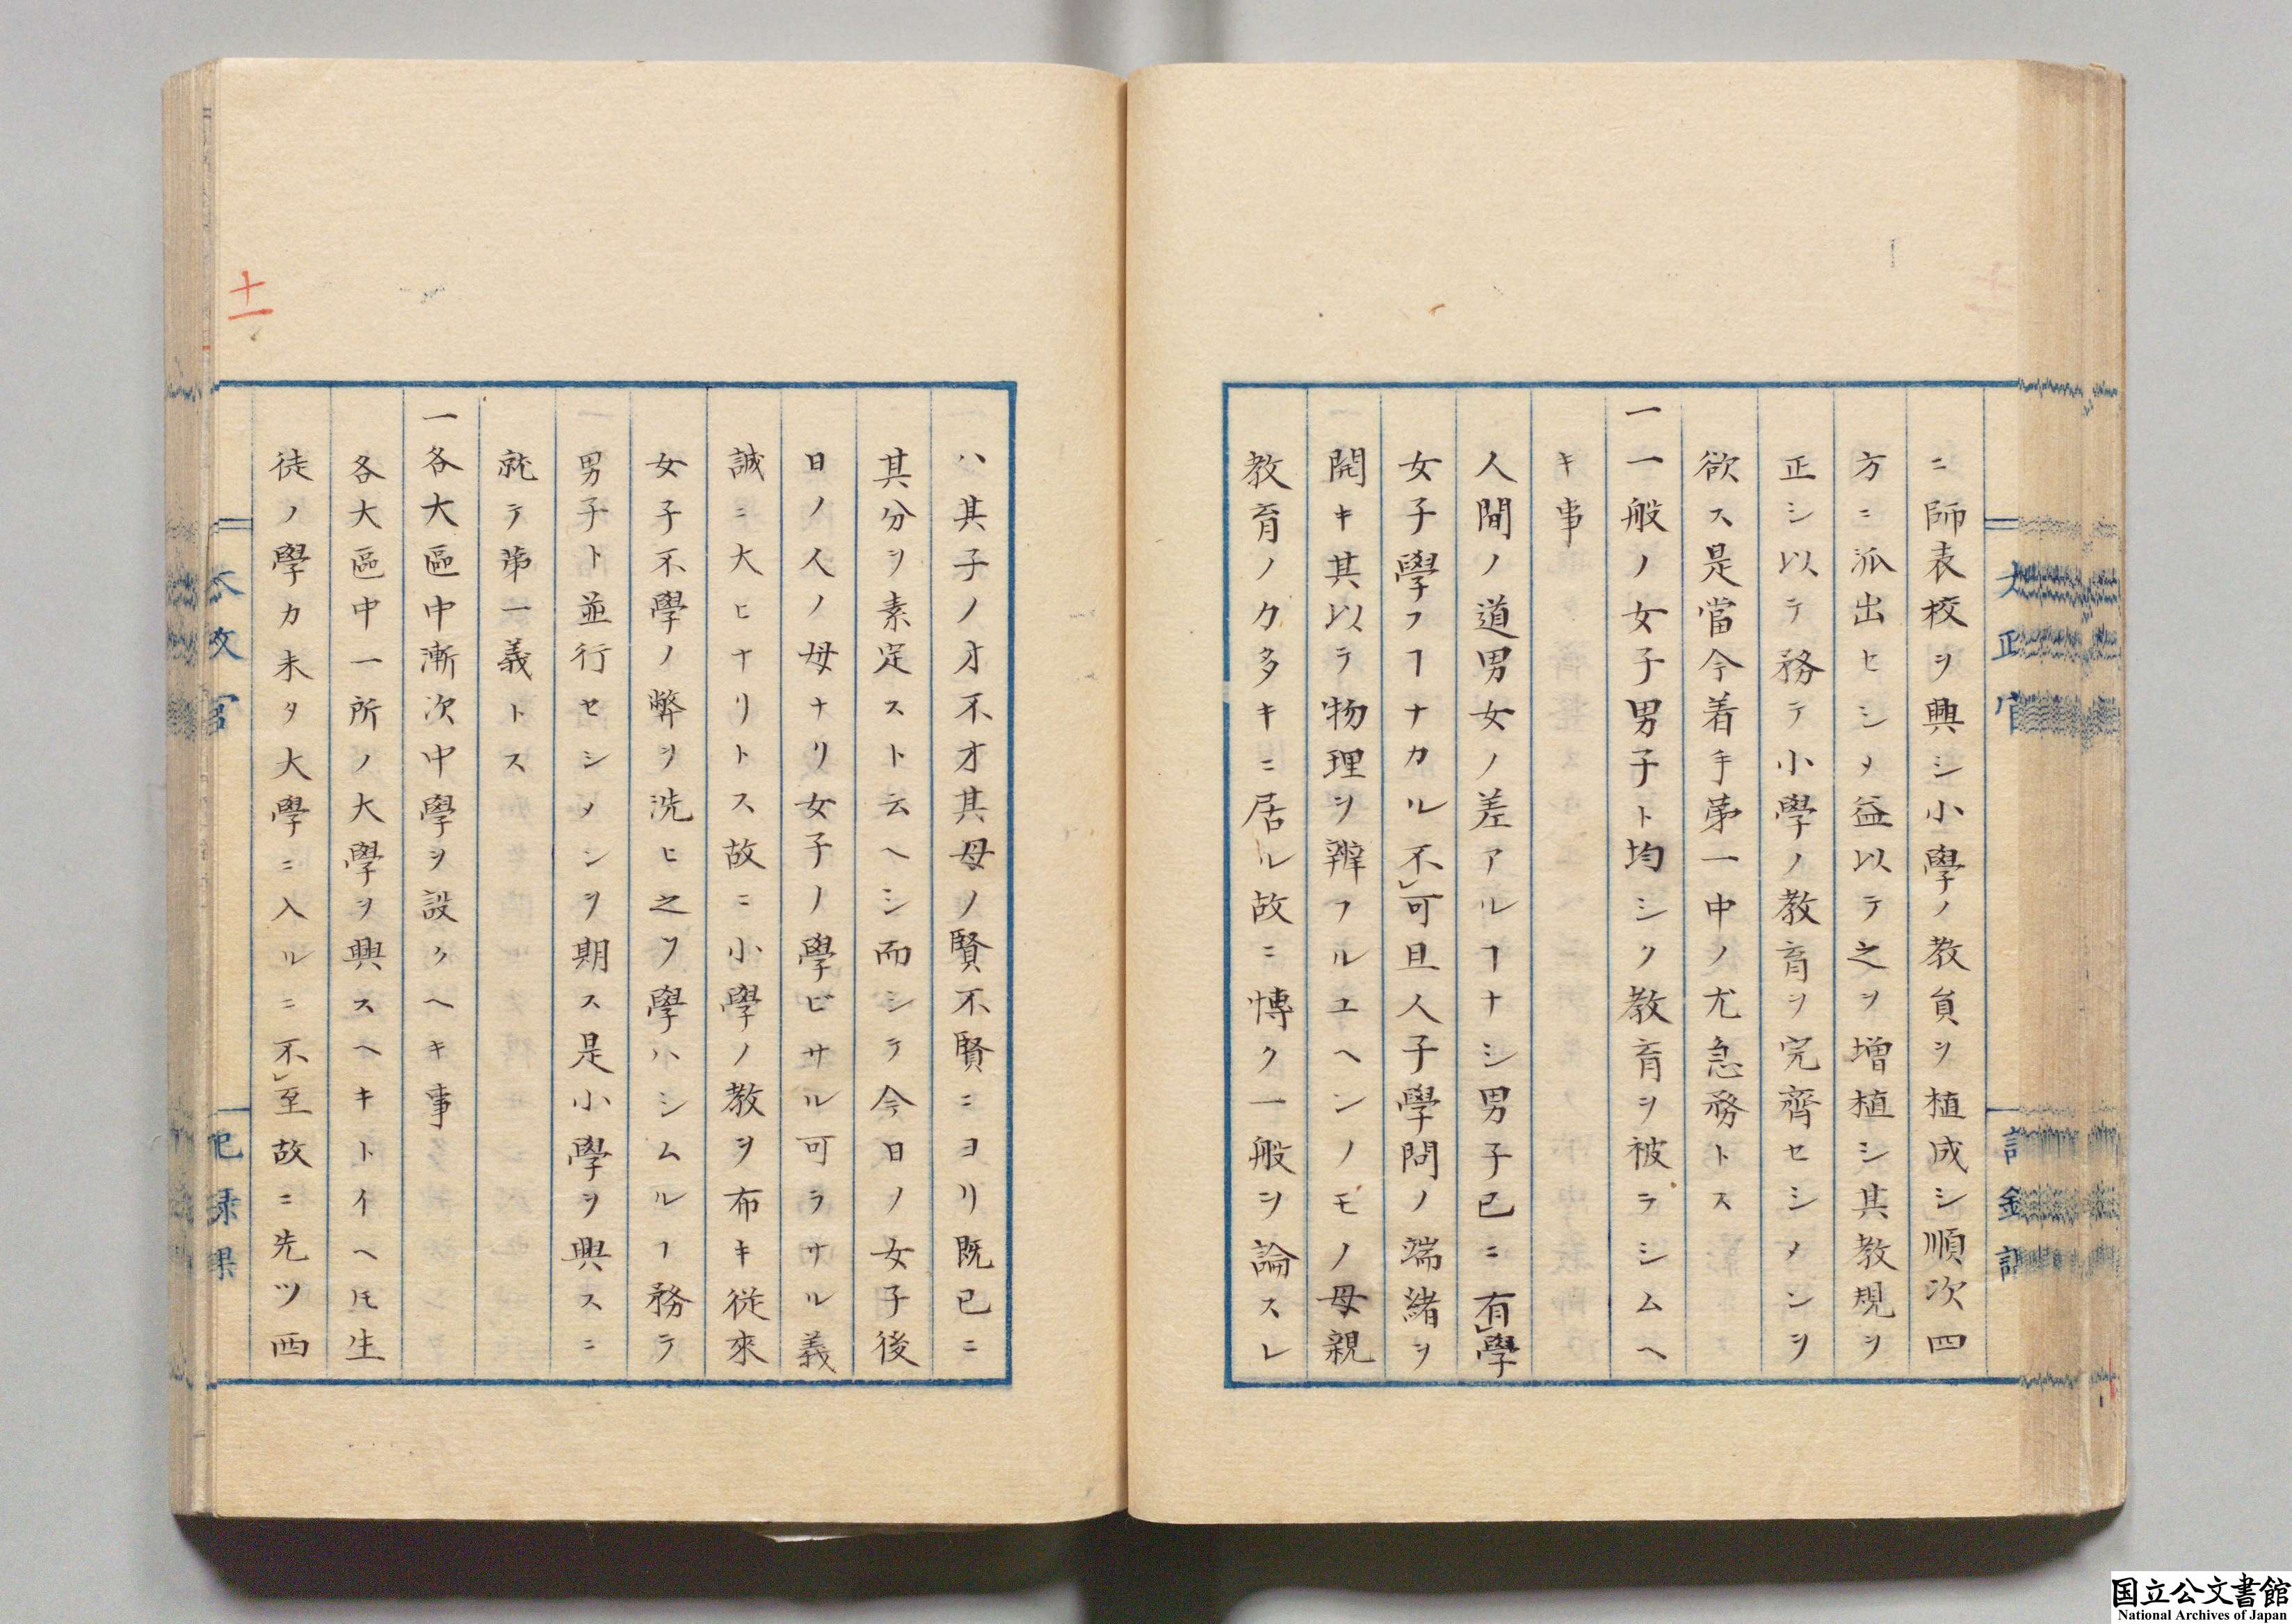 ニ師表校ヲ興シ小學ノ教員ヲ植成シ順次四
方ニ派出セシメ益以テ之ヲ増植シ其教規ヲ
正シ以テ務テ小學ノ教育ヲ完齊セシメンヲ
欲ス是當今着手第一中ノ尤急務トス
一一般ノ女子男子ト均シク教育ヲ被ラシムヘ
キ事
人間ノ道男女ノ差アルヿナシ男子已ニ有學
女子學フヿナカル不可且人子學問ノ端緒ヲ
開キ其以テ物理ヲ辨フルユヘンノモノ母親
教育ノ力多キニ居ル故ニ博ク一般ヲ論スレ
ハ其子ノ才不才其母ノ賢不賢ニヨリ既已ニ
其分ヲ素定スト云ヘシ而シテ今日ノ女子後
日ノ人ノ母ナリ女子ノ學ビサル可ラサル義
誠ニ大ヒナリトス故ニ小學ノ教ヲ布キ從來
女子不學ノ弊ヲ洗ヒ之ヲ學ハシムルヿ務テ
男子ト並行セシメンヲ期ス是小學ヲ興スニ
就テ第一義トス
一各大區中漸次中學ヲ設クヘキ事
各大區中一所ノ大學ヲ興スヘキトイヘ𪜈生
徒ノ學力未タ大學ニ入ルニ不至故ニ先ツ西
十一
国立公文書館
National Archives of Japan